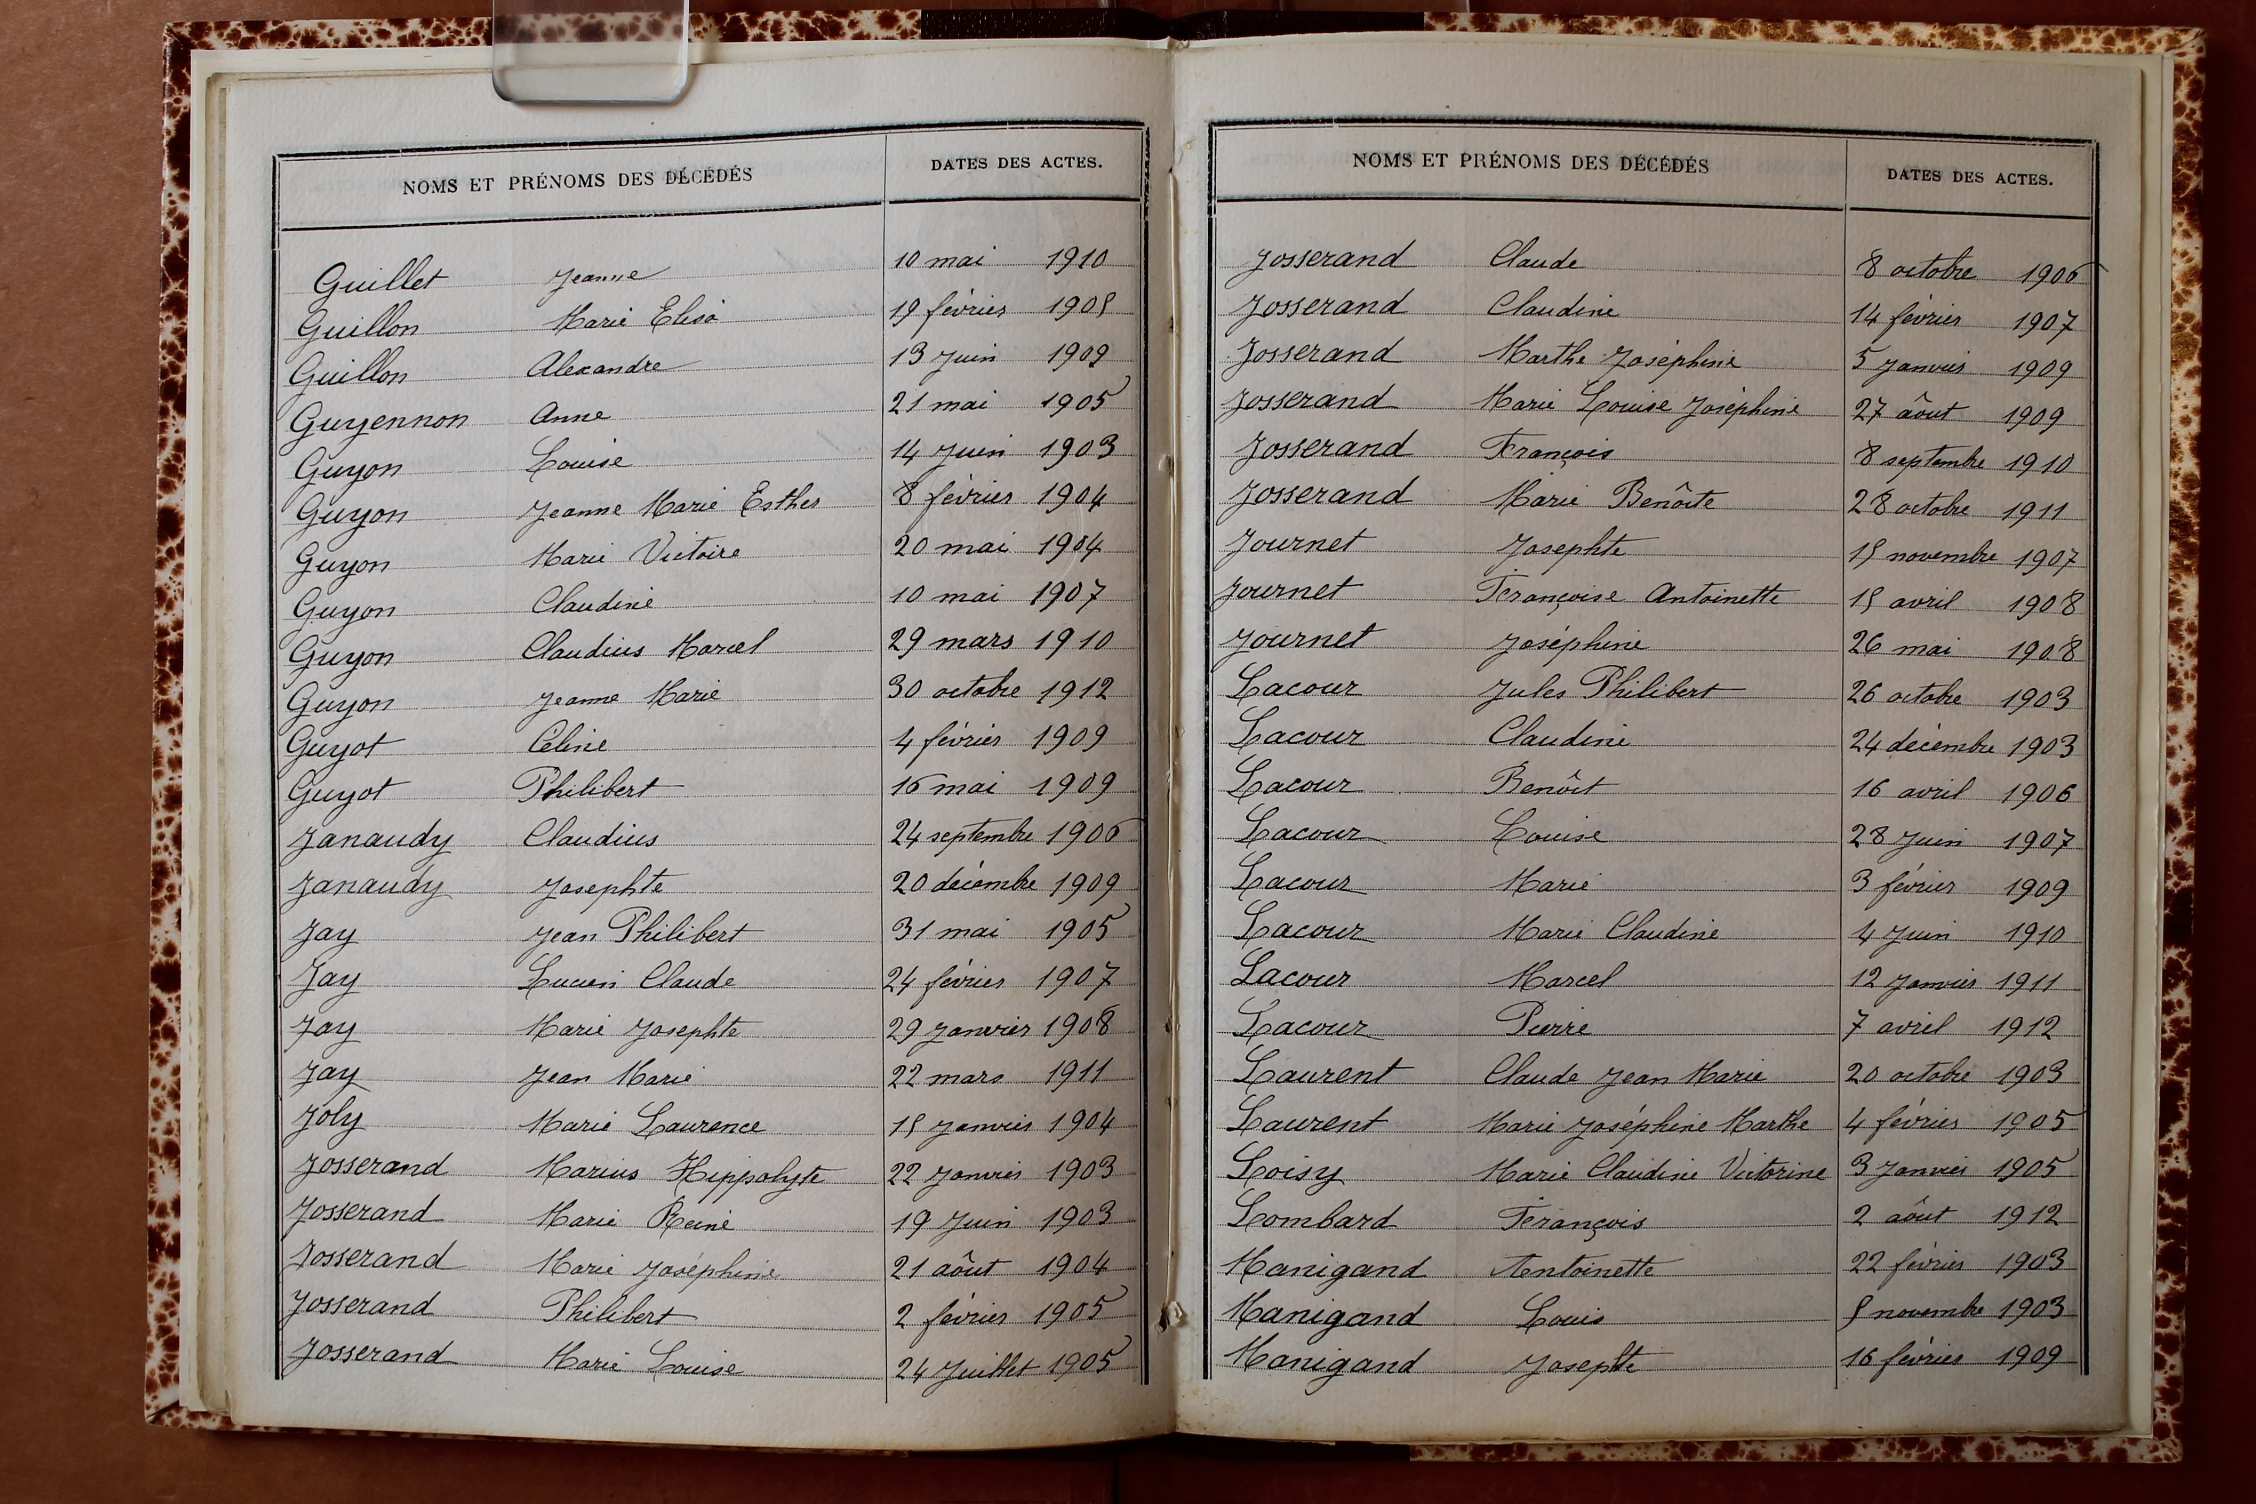 NOMS ET PRÉNOMS DES DÉCÉDÉS DATES DES ACTES.
Guillet Jeanne 10 mai 1910
Guillon Marie Elisa 19 février 1905
Guillon Alexandre 13 Juin 1909
Guyennon Anne 21 mai 1905
Guyon Louise 14 Juin 1903
Guyon Jeanne Marie Esther 8 février 1904
Guyon Marie Victoire 20 mai 1904
Guyon Claudine 10 mai 1907
Guyon Claudius Marcel 29 mars 1910
Guyon Jeanne Marie 30 octobre 1912
Guyot Céline 4 février 1909
Guyot Philibert 16 mai 1909
Janaudy Claudius 24 septembre 1906
Janaudy Josephte 20 décembre 1909
Jay Jean Philibert 31 mai 1905
Jay Lucien Claude 24 février 1907
Jay Marie Josephte 29 Janvier 1908
Jay Jean Marie 22 mars 1911
Joly Marie Laurence 15 Janvier 1904
Josserand Marius Hippolyte 22 Janvier 1903
Josserand Marie Reine 19 Juin 1903
Josserand Marie Joséphine 21 aôut 1904
Josserand Philibert 2 février 1905
Josserand Marie Louise 24 Juillet 1905
NOMS ET PRÉNOMS DES DÉCÉDÉS DATES DES ACTES.
Josserand Claude 8 octobre 1906
Josserand Claudine 14 février 1907
Josserand Marthe Joséphine 5 Janvier 1909
Josserand Marie Louise Joséphine 27 aôut 1909
Josserand François 8 septembre 1910
Josserand Marie Benôite 28 octobre 1911
Journet Josephte 15 novembre 1907
Journet Françoise Antoinette 15 avril 1908
Journet Joséphine 26 mai 1908
Lacour Jules Philibert 26 octobre 1903
Lacour Claudine 24 décembre 1903
Lacour Benôit 16 avril 1906
Lacour Louise 28 Juin 1907
Lacour Marie 3 février 1909
Lacour Marie Claudine 4 Juin 1910
Lacour Marcel 12 Janvier 1911
Lacour Pierre 7 avril 1912
Laurent Claude Jean Marie 20 octobre 1903
Laurent Marie Joséphine Marthe 4 février 1905
Loisy Marie Claudine Victorine 3 Janvier 1905
Lombard François 2 aôut 1912
Manigand Antoinette 22 février 1903
Manigand Louis 5 novembre 1903
Manigand Josephte 16 février 1909